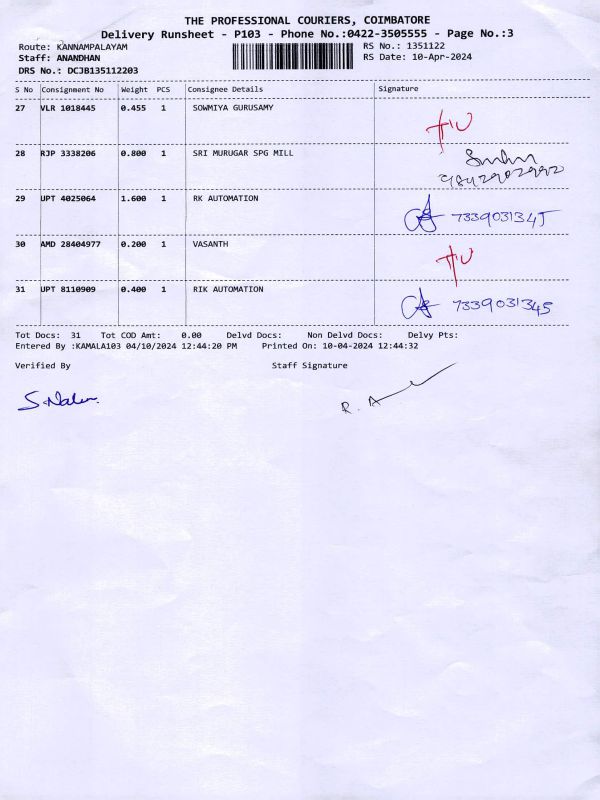 THE PROFESSIONAL COURIERS, COIMBATORE
Delivery Runsheet - P103 - Phone No.:0422-3505555 - Page No.:3
Route: KANNAMPALAYAM
RS No.: 1351122
Staff: ANANDHAN
RS Date: 10-Apr-2024
DRS No.: DCJB135112203
S No Consignment No Weight PCS Consignee Details Signature
27 VLR 1018445 0.455 1 SOWMIYA GURUSAMY
28 RJP 3338206 0.800 1 SRI MURUGAR SPG MILL
29 UPT 4025064 1.600 1 RK AUTOMATION
7339031345
30 AMD 28404977 0.200 1 VASANTH
31 UPT 8110909 0.400 1 RIK AUTOMATION
7339031345
Tot Docs: 31 Tot COD Amt: 0.00 Delvd Docs: Non Delvd Docs: Delvy Pts:
Entered By :KAMALA103 04/10/2024 12:44:20 PM Printed On: 10-04-2024 12:44:32
Verified By Staff Signature